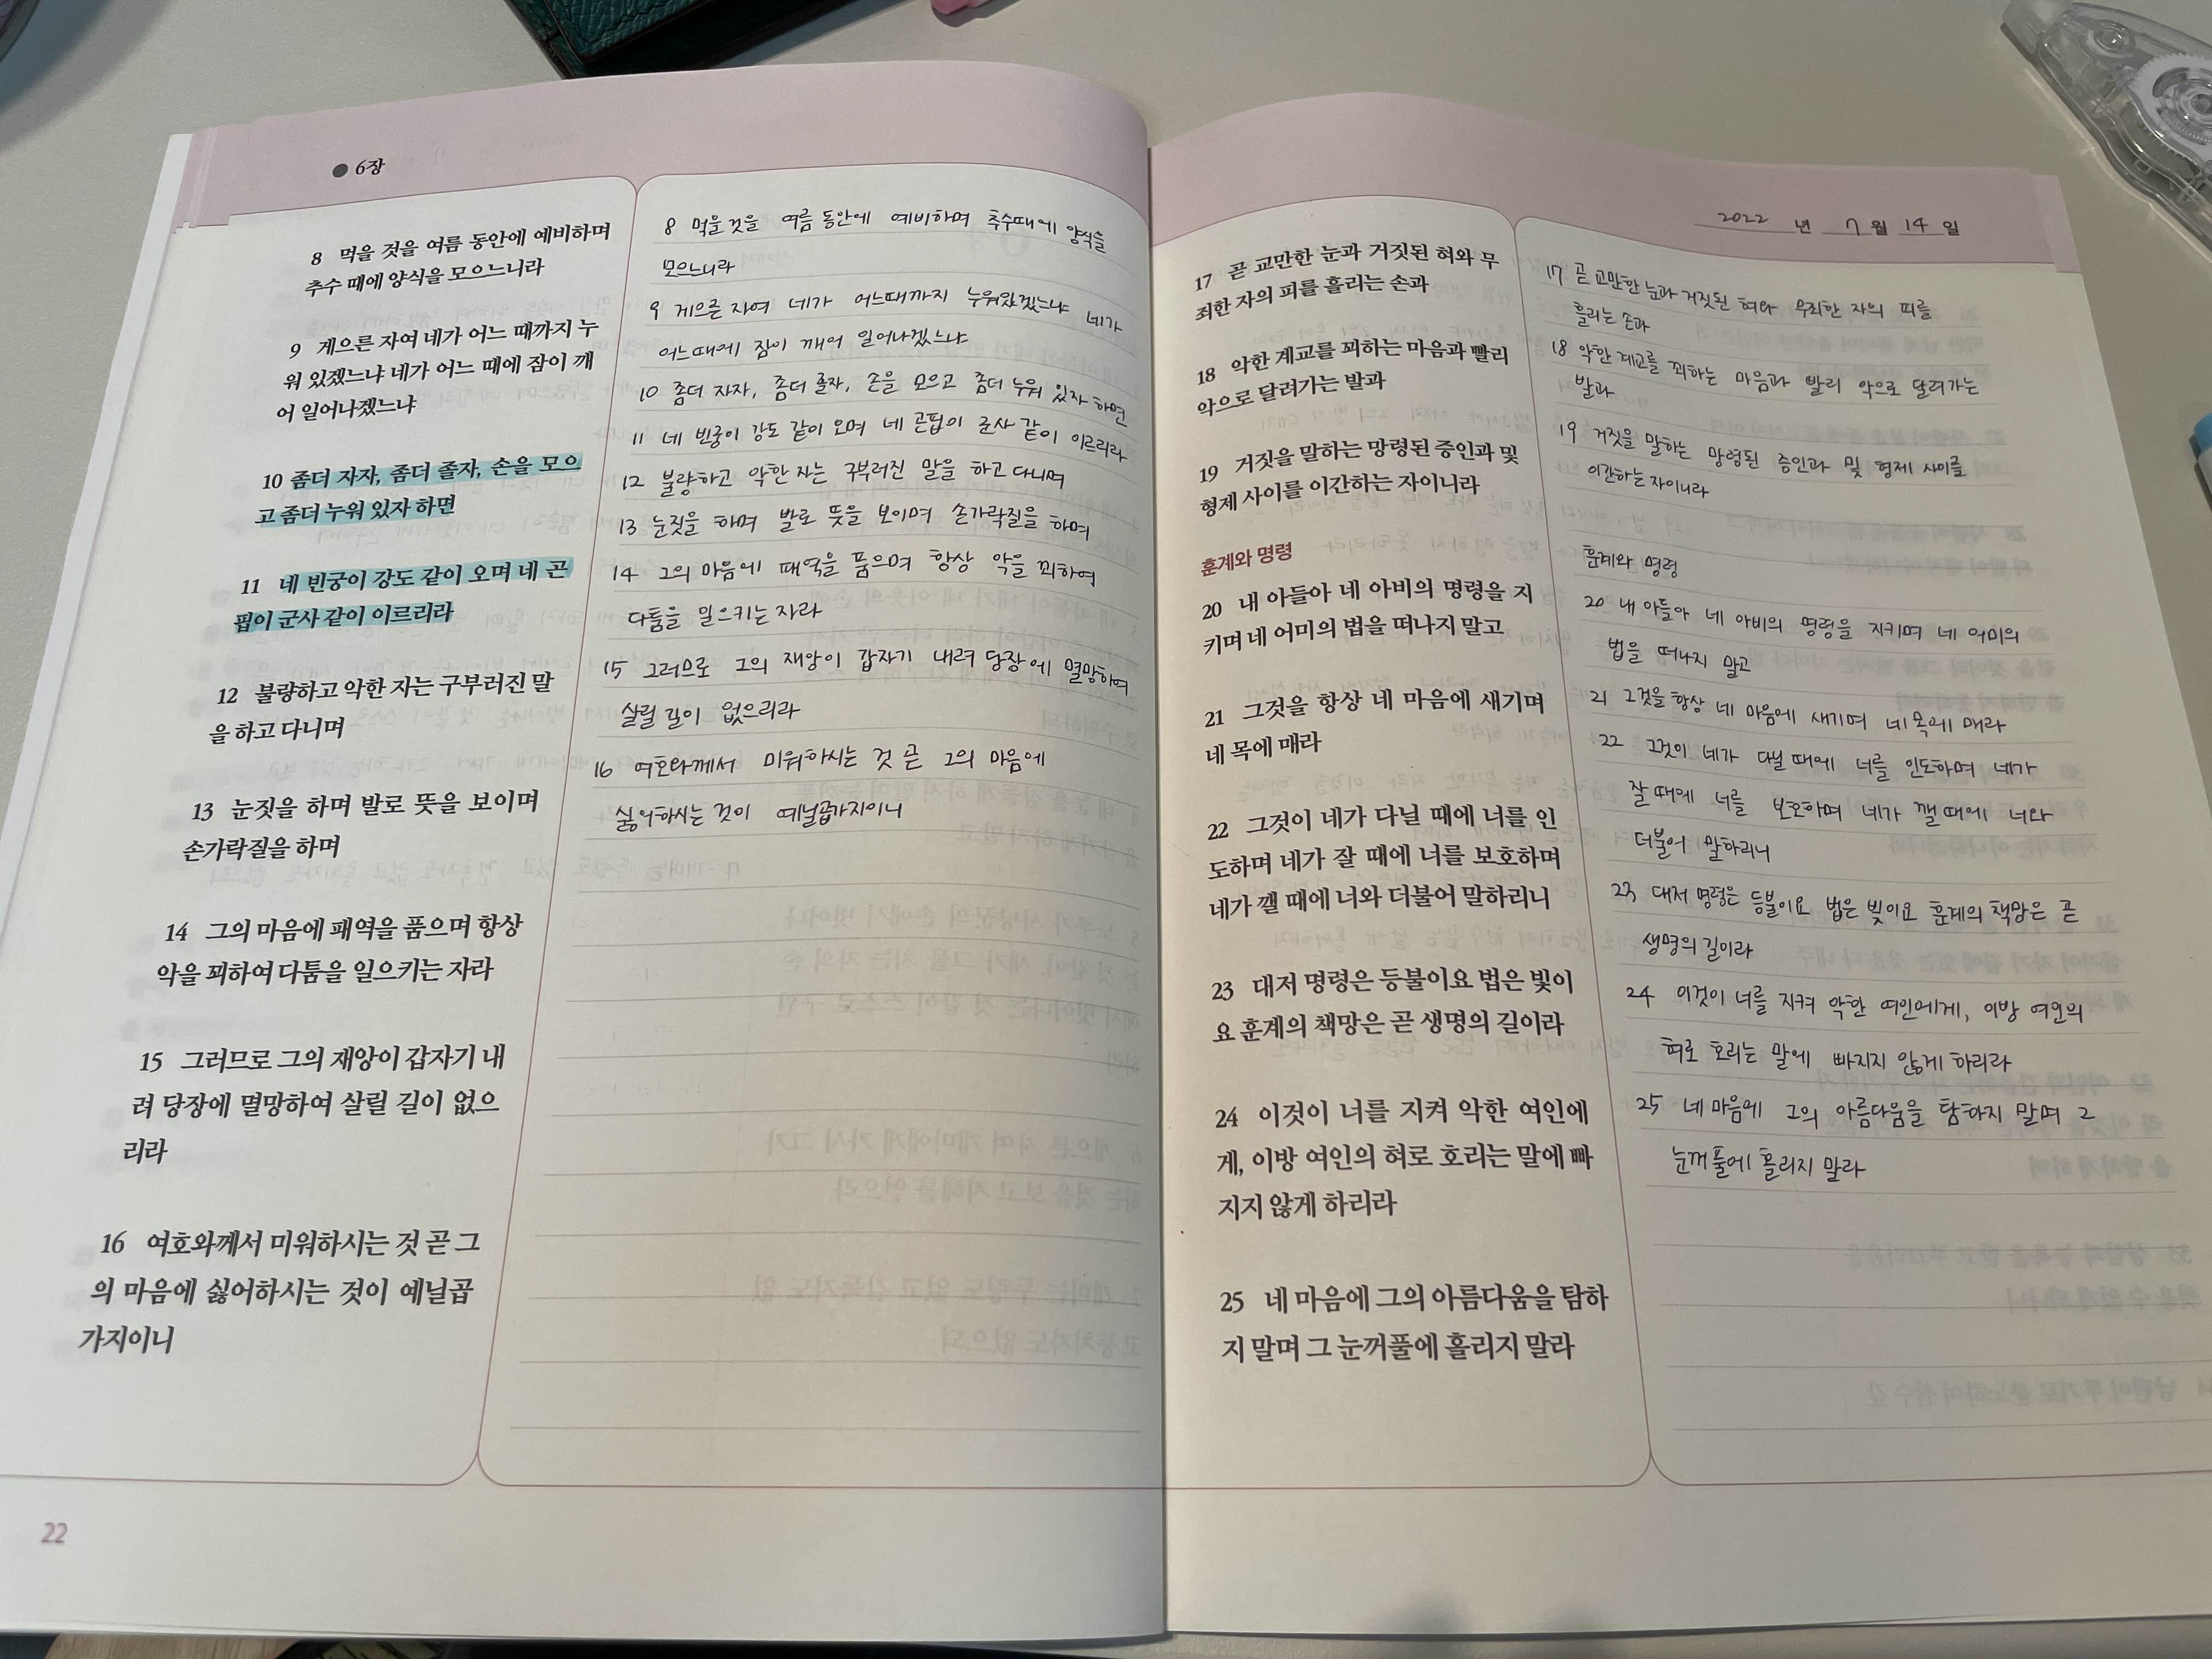 ● 6장
8 먹을 것을 여름 동안에 예비하며
추수 때에 양식을 모으느니라
9 게으른 자여 네가 어느 때까지 누
워 있겠느냐 네가 어느 때에 잠이 깨
어 일어나겠느냐
10 좀더 자자, 좀더 졸자, 손을 모으
고 좀더 누워 있자 하면
11 네 빈궁이 강도 같이 오며 네 곤
핍이 군사 같이 이르리라
12 불량하고 악한 자는 구부러진 말
을 하고 다니며
13 눈짓을 하며 발로 뜻을 보이며
손가락질을 하며
14 그의 마음에 패역을 품으며 항상
악을 꾀하여 다툼을 일으키는 자라
15 그러므로 그의 재앙이 갑자기 내
려 당장에 멸망하여 살릴 길이 없으
리라
16 여호와께서 미워하시는 것 곧 그
의 마음에 싫어하시는 것이 예닐곱
가지이니
8 먹을 것을 여름 동안에 예비하며 추수때에 양식을
모으느니라
9 게으른 자여 네가 어느때까지 누워있겠느냐 네가
어느때에 잠이 깨어 일어나겠느냐
10 좀더 자자, 좀더 졸자, 손을 모으고 좀더 누워 있자 하면
11 네 빈궁이 강도 같이 오며 네 곤핍이 군사 같이 이르리라
12 불량하고 악한 자는 구부러진 말을 하고 다니며
13 눈짓을 하며 발로 뜻을 보이며 손가락질을 하며
14 그의 마음에 패역을 품으며 항상 악을 꾀하여
다툼을 일으키는 자라
15 그러므로 그의 재앙이 갑자기 내려 당장에 멸망하여
살릴 길이 없으리라
16 여호와께서 미워하시는 것 곧 그의 마음에
싫어하시는 것이 예닐곱가지이니
22
2022 년 7 월 14 일
17 곧 교만한 눈과 거짓된 혀와 무
죄한 자의 피를 흘리는 손과
18 악한 계교를 꾀하는 마음과 빨리
악으로 달려가는 발과
19 거짓을 말하는 망령된 증인과 및
형제 사이를 이간하는 자이니라
훈계와 명령
20 내 아들아 네 아비의 명령을 지
키며 네 어미의 법을 떠나지 말고
21 그것을 항상 네 마음에 새기며
네 목에 매라
22 그것이 네가 다닐 때에 너를 인
도하며 네가 잘 때에 너를 보호하며
네가 깰 때에 너와 더불어 말하리니
23 대저 명령은 등불이요 법은 빛이
요 훈계의 책망은 곧 생명의 길이라
24 이것이 너를 지켜 악한 여인에
게, 이방 여인의 혀로 호리는 말에 빠
지지 않게 하리라
25 네 마음에 그의 아름다움을 탐하
지 말며 그 눈꺼풀에 홀리지 말라
17 곧 교만한 눈과 거짓된 혀와 무죄한 자의 피를
흘리는 손과
18 악한 계교를 꾀하는 마음과 빨리 악으로 달려가는
발과
19 거짓을 말하는 망령된 증인과 및 형제 사이를
이간하는 자이니라
훈계와 명령
20 내 아들아 네 아비의 명령을 지키며 네 어미의
법을 떠나지 말고
21 그것을 항상 네 마음에 새기며 네 목에 매라
22 그것이 네가 다닐 때에 너를 인도하며 네가
잘 때에 너를 보호하며 네가 깰 때에 너와
더불어 말하리니
23 대저 명령은 등불이요 법은 빛이요 훈계의 책망은 곧
생명의 길이라
24 이것이 너를 지켜 악한 여인에게, 이방 여인의
혀로 호리는 말에 빠지지 않게 하리라
25 네 마음에 그의 아름다움을 탐하지 말며 그
눈꺼풀에 홀리지 말라